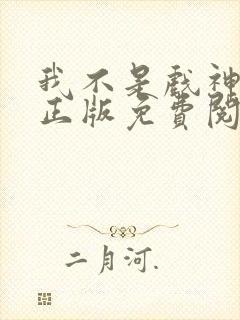 我不是戏神
正版免費閱
二月河.